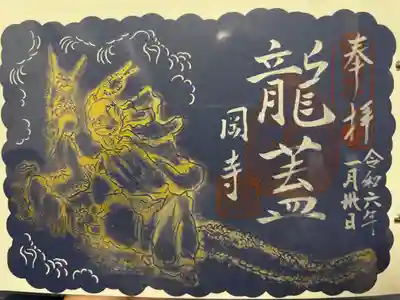 奉拝
令和六年
一月卅日
龍蓋
岡寺